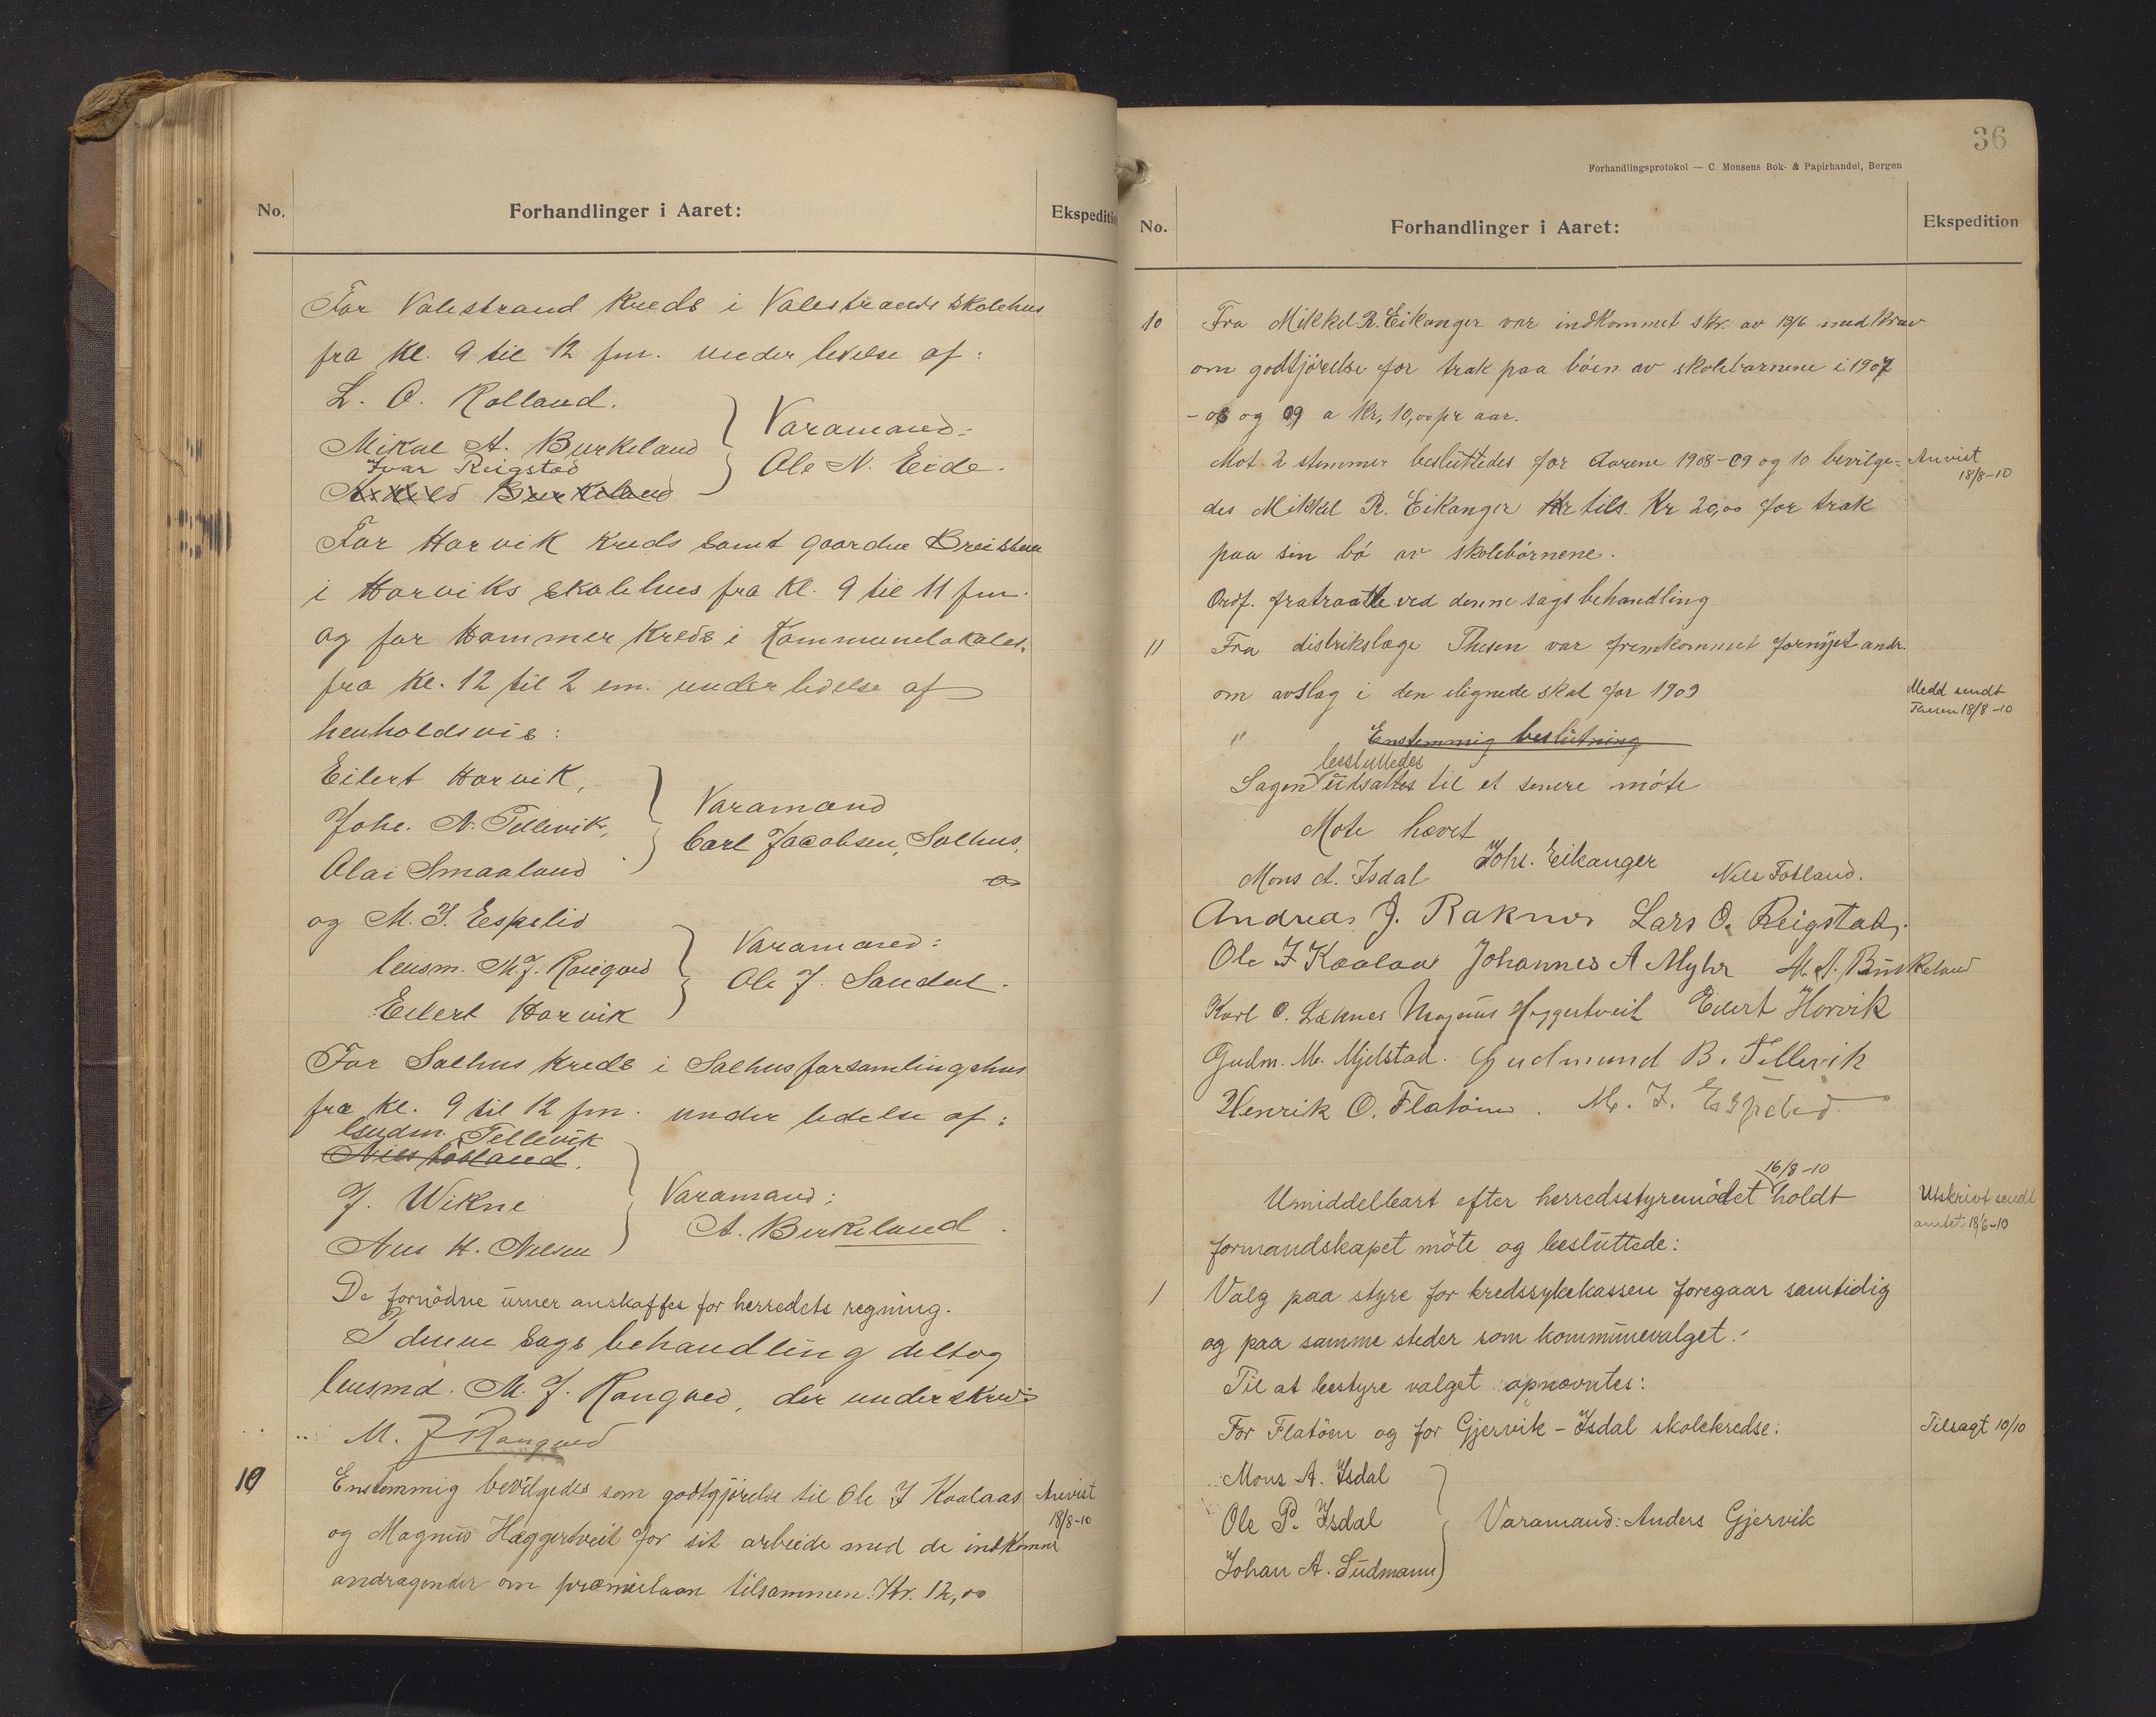 No.
Forhandlinger i Aaret:
Ekspeditio
For Valestrand Kreds i Valestrands skolehus
fra Kl. 9 til 12 fm. under ledelse af:
L. O. Rolland.
Mikal A. Burkeland
Ivar Reigstad
Varamand:
Ole N. Eide.
For Horvik Kreds samt gaarden Breisten
i Horviks skolehus fra Kl. 9 til 11 fm.
og for Hammer Kreds i Kommunelokalet.
fra Kl. 12 til 2 em. under ledelse af
henholdsvis:
Eilert Horvik,
Johs. N. Tellevik,
Olai Smaaland
Varamand
Carl Jacobsen, Salhus.
og M. I. Espelid
lensm. M. J. Rongved
Eilert Horvik
Varamand:
Ole J. Sandal.
For Salhus Kreds i Salhus forsamlingshus
fra Kl. 9 til 12 fm. under ledelse af:
Gudm. Tellevik
Nils Fosland.
J. Wikne
Ans H. Nelsen
Varamand:
A. Birkeland.
De fornödne urner anskaffes for herredets regning.
I denne sags behandling deltog
lensmd. M. J. Rongved, der underskrev:
M. J Rongved
10
Enstemmig bevilgedes som godtgjörelse til Ole I Kaalaas
og Magnus Hæggertveit for sit arbeide med de indkomne
andragender om præmielaan tilsammen Kr. 12,00
Anvist
18/8-10
36
Forhandlingsprotokol — C. Monsens Bok- & Papirhandel, Bergen
No.
Forhandlinger i Aaret:
Ekspedition
10
Fra Mikkel R. Eikanger var indkommet skr. av 13/6 med krav
om godtjörelse for trak paa böen av skolebarnene i 1907
- 08 og 09 a Kr. 10,00 pr aar.
Mot 2 stemmer besluttedes for Aarene 1908-09 og 10 bevilge-
des Mikkel R. Eikanger tils. Kr 20,00 for trak
paa sin bö av skolebörnene.
Ordf. fratraatte ved denne sags behandling
Anvist
18/8-10
11
Fra distrikslæge Thesen var fremkommet fornyet andr.
om avslag i den ilignede skat for 1909
Medd sendt
Thesen 18/8-10
"
Enstemmig beslutning
besluttedes
Sagen utsattes til et senere möte
Möte hævet
Mons A. Isdal Johs. Eikanger Nils Fosland.
Andreas J. Raknes Lars O. Reigstad.
Ole I Kaalaas Johannes A Myhr M. A. Burkeland
Karl O. Læknes Magnus Hæggertveit Eilert Horvik
Gudm. M. Mjelstad. Gudmund B. Tellevik
Henrik O. Flatöen. M. I. Espelid
16/8-10
Umiddelbart efter herredsstyremödet holdt
formandskapet möte og besluttede:
Utskrivt sendt
amtet 18/6-10
1
Valg paa styre for kredssykekassen foregaar samtidig
og paa samme steder som kommunevalget.
Til at bestyre valget opnævntes:
For Flatöen og for Gjervik - Isdal skolekredse:
Tilsagt 10/10
Mons A. Isdal
Ole P. Isdal
Johan A. Sudmann
Varamand: Anders Gjervik